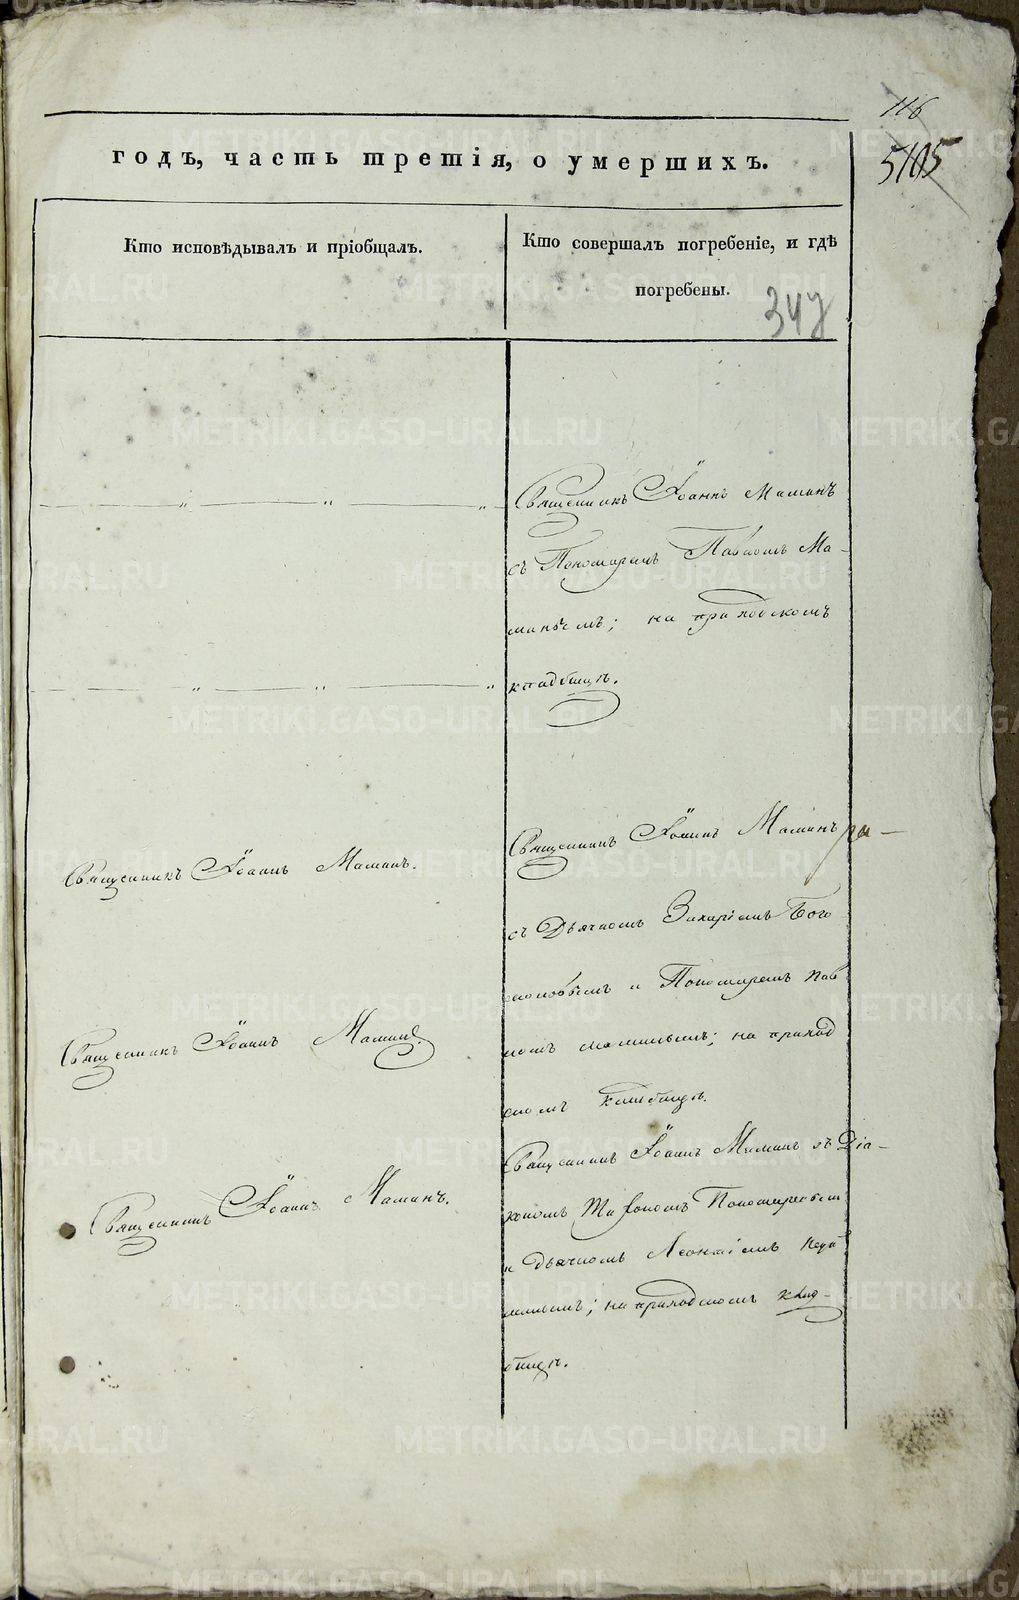 116
5105
годъ, часть третія, о умершихъ.
Кто исповѣдывалъ и пріобщалъ.
Кто совершалъ погребеніе, и гдѣ
погребены.
347
Священникъ Іоаннъ Маминъ
съ Пономаремъ Павломъ Ма-
минымъ; на приходскомъ
кладбищѣ.
Священникъ Іоаннъ Маминъ.
Священникъ Іоаннъ Маминъ
съ Дьячкомъ Захаріемъ Бого
словымъ и Пономаремъ Пав
ломъ Маминымъ; на приход
скомъ кладбищѣ.
Священникъ Іоаннъ Маминъ.
Священникъ Іоаннъ Маминъ.
Священникъ Іоаннъ Маминъ съ Діа-
кономъ Пономаревымъ
и Дьячкомъ Леонтіемъ
на приходскомъ клад-
бищѣ.
METRIKI.GASO-URAL.RU